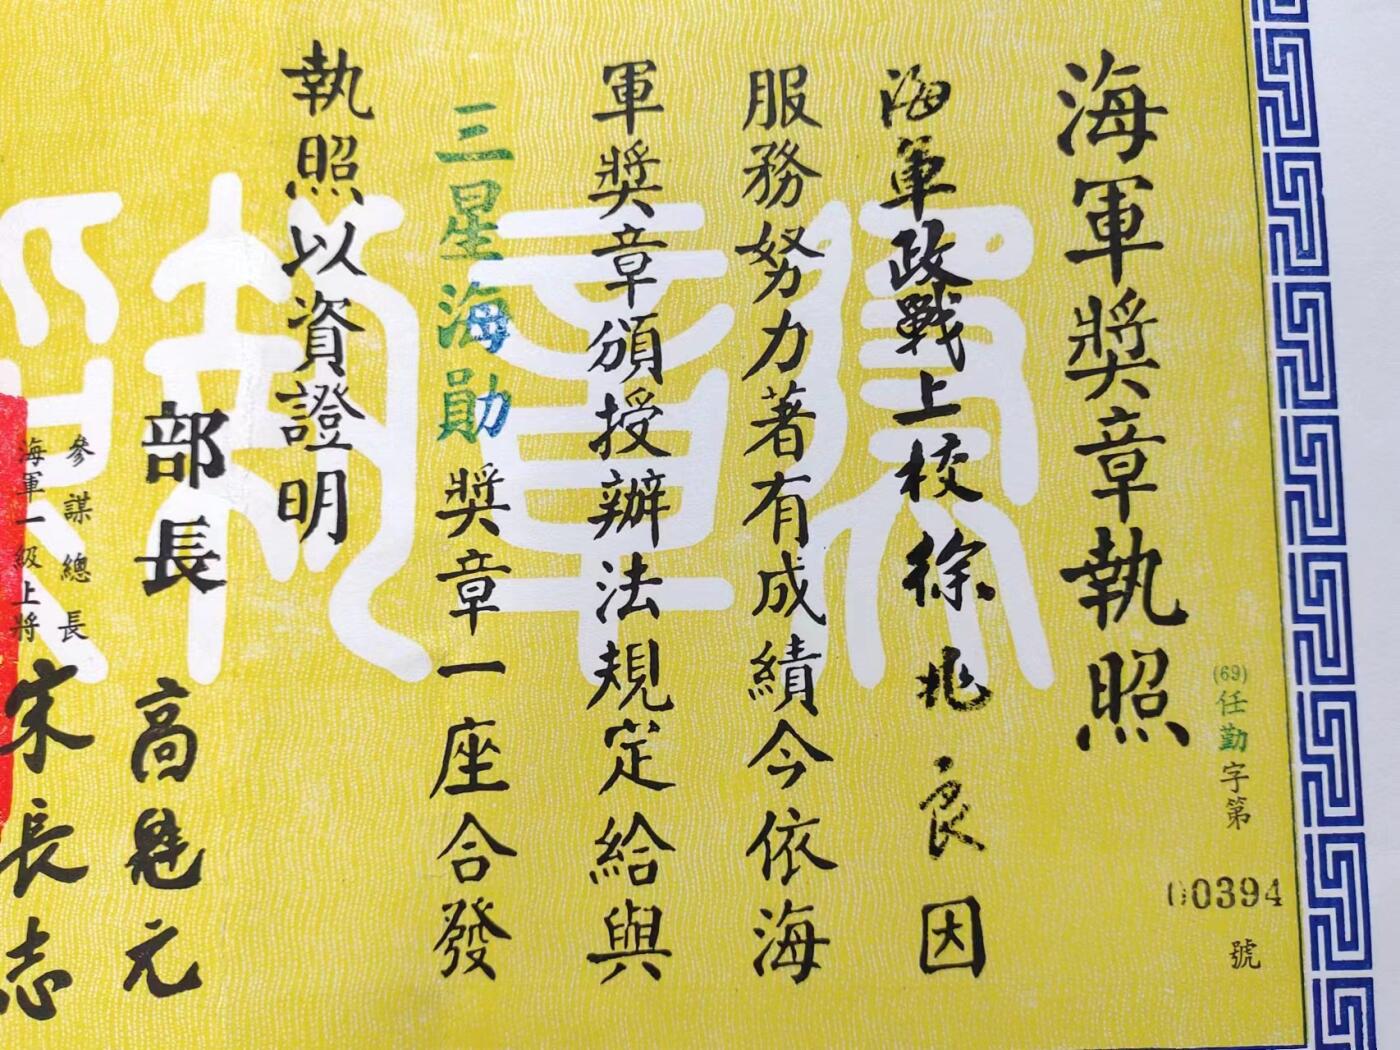 海軍獎章執照
(69)任勤字第00394號
海軍政戰上校徐兆良因
服務努力著有成績今依海
軍獎章頒授辦法規定給與
三星海勛獎章一座合發
執照以資證明
部長 高魁元
參謀總長
海軍一級上將 宋長志
獎章執照